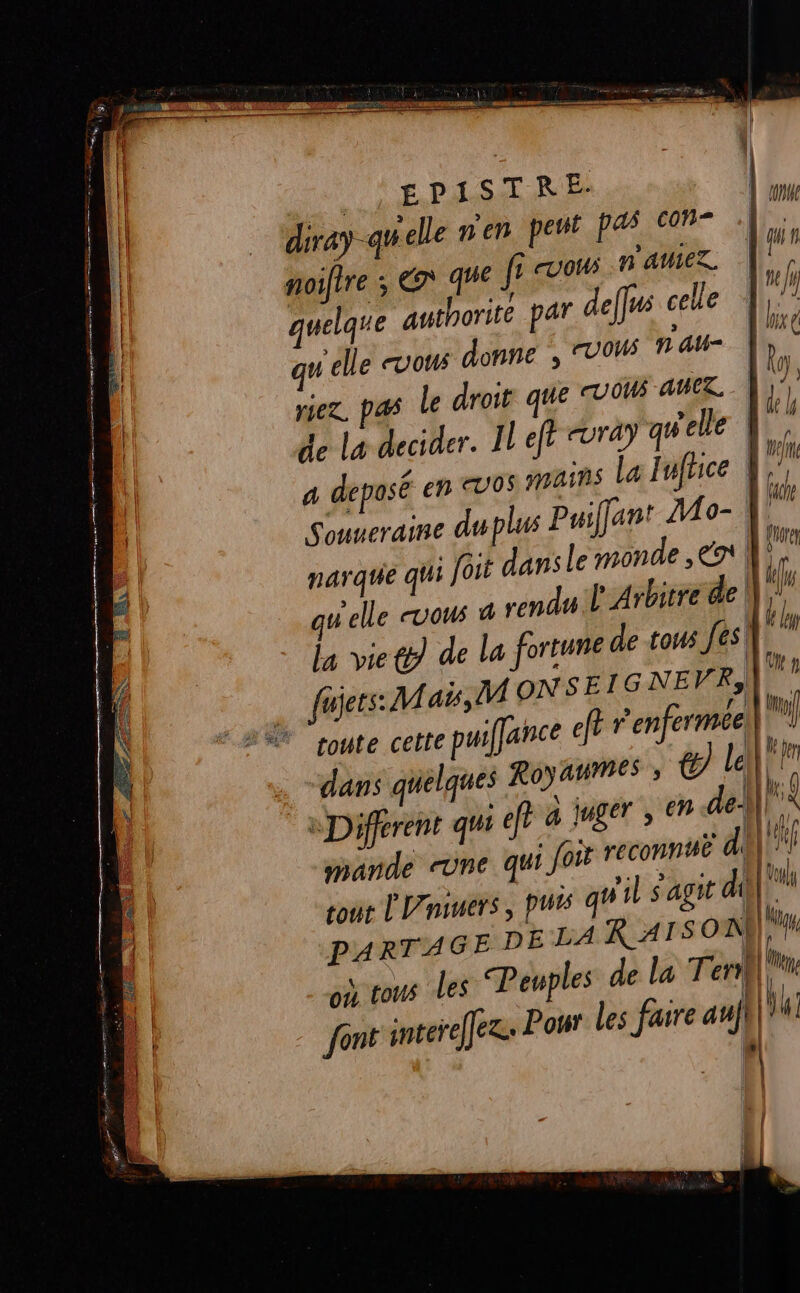 EPISTRE.
diray-qu'elle n'en peut pas con-
noiſtre ; & que ſi vous n'auiez
quelque authorité par deſſus celle
qu'elle vous donne , vous n'au-
riez pas le droit que vous auez
de la decider. Il eſt vray qu'elle
a deposé en vos mains la Iuſtice
Souueraine du plus Puiſſant Mo-
narque qui ſoit dans le monde , &
qu'elle vous a rendu l'Arbitre de
la vie & de la fortune de tous ſes
ſujets: Mais, MONSEIGNEVR,
toute cette puiſſance eſt r'enfermée
dans quelques Royaumes , & le
Different qui eſt à juger , en de-
mande vne qui ſoit reconnuë d
tout l'Vniuers, puis qu'il s'agit d
PARTAGE DE LA RAISON
où tous les Peuples de la Terr
ſont intereſſez. Pour les faire auſ